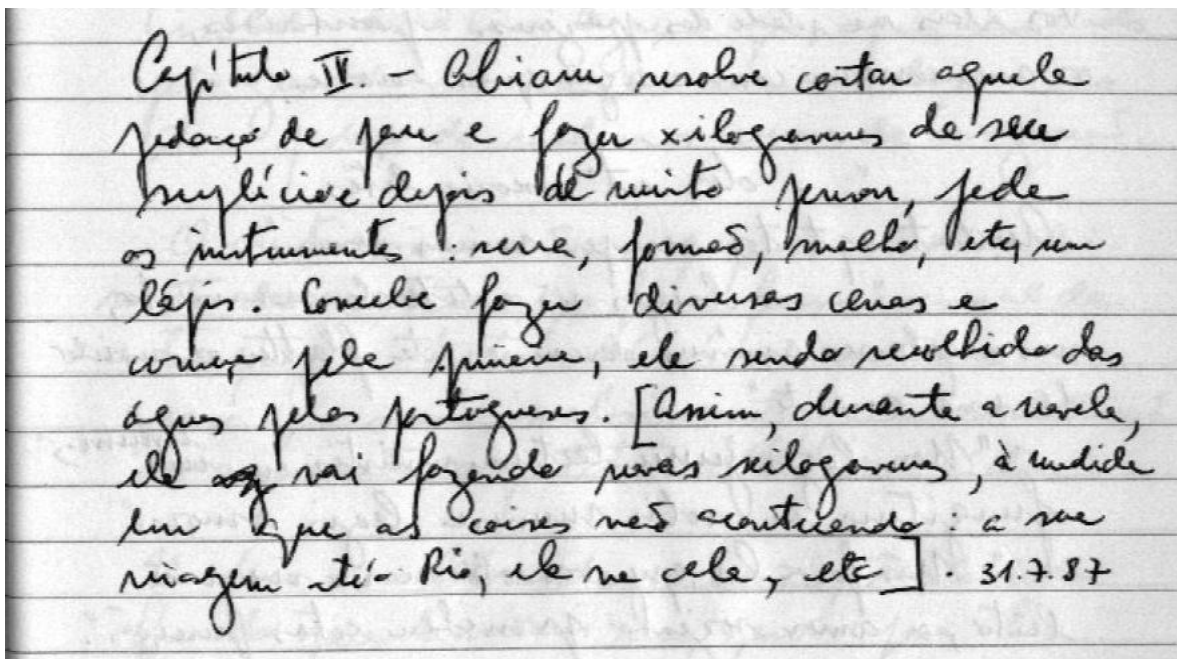 Capítulo IV. – Obiaru resolve cortar aquele
pedaço de pau e fazer xilogravuras de seu
suplício e depois de muito pensar, pede
os instrumentos: serra, formão, malho, etc, um
lápis. Concebe fazer diversas cenas e
começa pela primeira, ele sendo recolhido das
águas pelos portugueses. [Assim, durante a novela,
ele vai fazendo novas xilogravuras, à medida
em que as coisas vão acontecendo: a sua
viagem até o Rio, ele na cela, etc]. 31.7.87